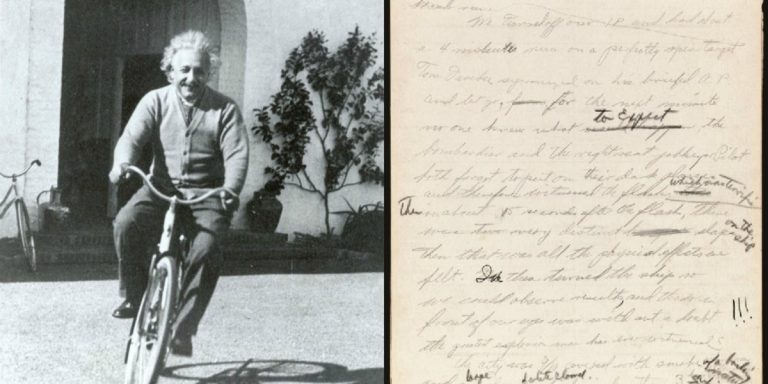 We turned off our I.P. and had about
a 4 minute run on a perfectly open target
Tom Ferebee synchronized on his briefed A.P.
and let go, for the next minute
no one knew what to expect the
bombardier and the right seat jockey or Pilot
both forgot to put on their dark glasses
and therefore witnessed the flash which was terrific
Then in about 15 seconds after the flash, there
were two very distinct slaps on the ship
then that was all the physical effects we
felt. We then turned the ship so
we could observe results and then in
front of our eyes was without a doubt
the greatest explosion man has ever witnessed
!!!
the city was 9/10 covered with smoke
large white cloud.